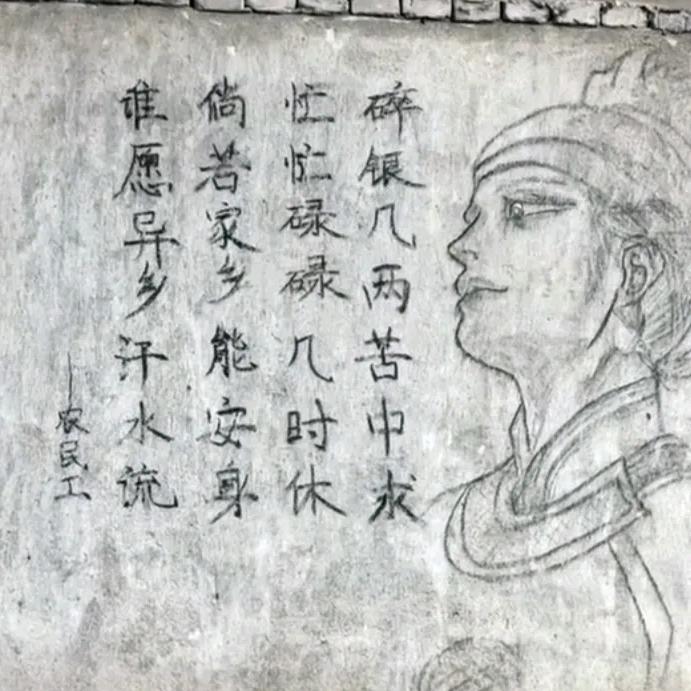 碎银几两苦中求
忙忙碌碌几时休
倘若家乡能安身
谁愿异乡汗水流
—农民工